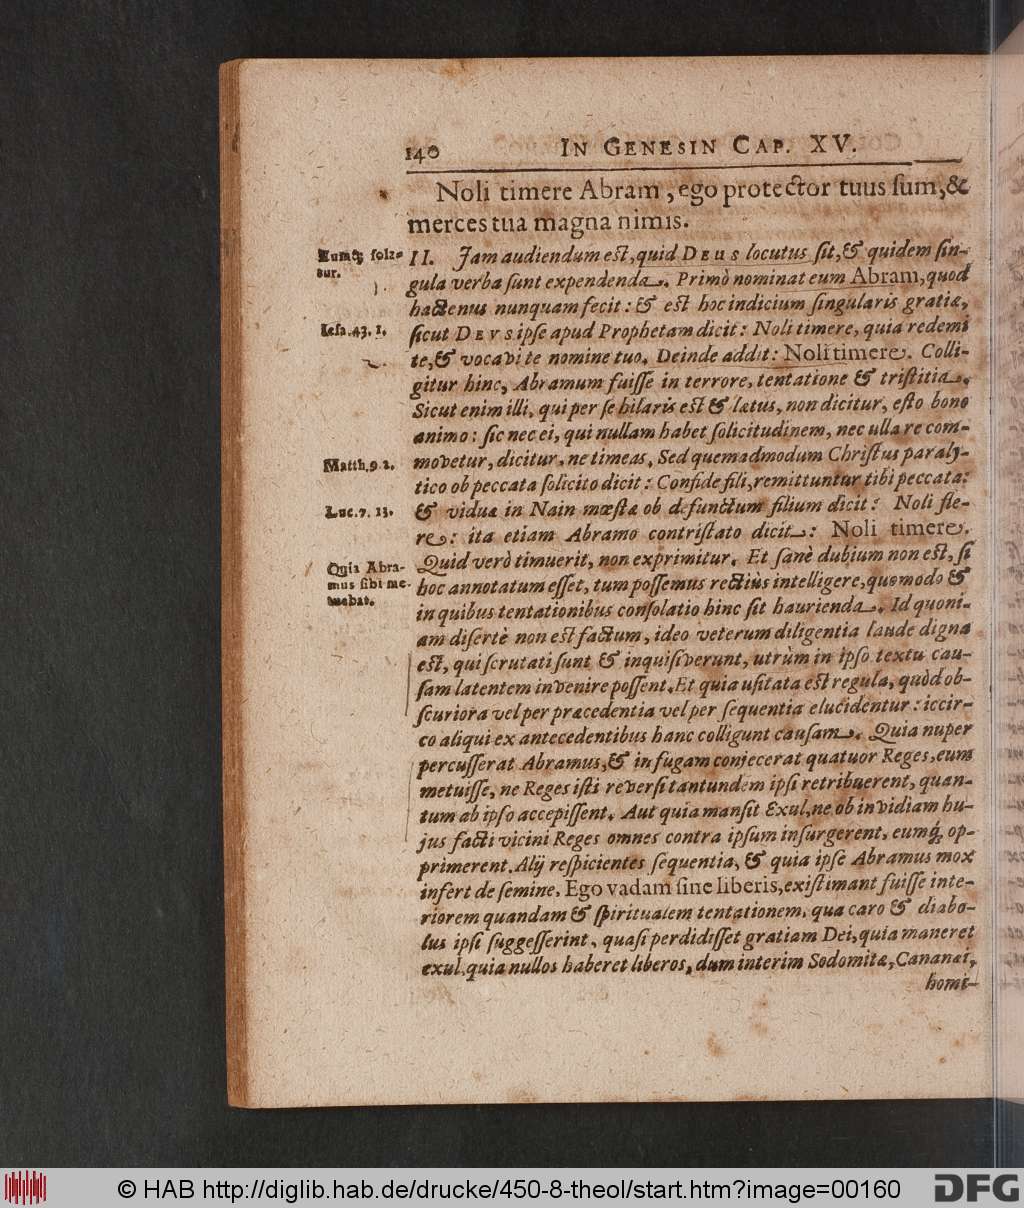 140 IN GENESIN CAP. XV.
Noli timere Abram, ego protector tuus ſum, &
merces tua magna nimis.
Eumq; ſola-
tur.
II. Jam audiendum eſt, quid DEUS locutus ſit, & quidem ſin-
gula verba ſunt expendenda. Primò nominat eum Abram, quod
hactenus nunquam fecit: & eſt hoc indicium ſingularis gratiæ,
Ieſa. 43. 1.
ſicut DEVS ipſe apud Prophetam dicit: Noli timere, quia redemi
te, & vocavi te nomine tuo. Deinde addit: Noli timere. Colli-
gitur hinc, Abramum fuiſſe in terrore, tentatione & triſtitia.
Sicut enim illi, qui per ſe hilaris eſt & lætus, non dicitur, eſto bono
animo: ſic nec ei, qui nullam habet ſolicitudinem, nec ulla re com-
Matth. 9. 2.
movetur, dicitur, ne timeas. Sed quemadmodum Chriſtus paraly-
tico ob peccata ſolicito dicit: Confide fili, remittuntur tibi peccata:
Luc. 7. 13.
& viduæ in Nain mœſtæ ob defunctum filium dicit: Noli fle-
re: ita etiam Abramo contriſtato dicit: Noli timere.
Quia Abra-
mus ſibi me-
tuebat.
Quid verò timuerit, non exprimitur. Et ſanè dubium non eſt, ſi
hoc annotatum eſſet, tum poſſemus rectiùs intelligere, quomodo &
in quibus tentationibus conſolatio hinc ſit haurienda. Id quoni-
am diſertè non eſt factum, ideo veterum diligentia laude digna
eſt, qui ſcrutati ſunt & inquiſiverunt, utrùm in ipſo textu cau-
ſam latentem invenire poſſent. Et quia uſitata eſt regula, quòd ob-
ſcuriora vel per præcedentia vel per ſequentia elucidentur: iccir-
co aliqui ex antecedentibus hanc colligunt cauſam. Quia nuper
percuſſerat Abramus, & in fugam conjecerat quatuor Reges, eum
metuiſſe, ne Reges iſti reverſi tantundem ipſi retribuerent, quan-
tum ab ipſo accepiſſent. Aut quia manſit Exul, ne ob invidiam hu-
jus facti vicini Reges omnes contra ipſum inſurgerent, eumq; op-
primerent. Alij reſpicientes ſequentia, & quia ipſe Abramus mox
infert de ſemine, Ego vadam ſine liberis, exiſtimant fuiſſe inte-
riorem quandam & ſpiritualem tentationem, qua caro & diabo-
lus ipſi ſuggeſſerint, quaſi perdidiſſet gratiam Dei, quia maneret
exul, quia nullos haberet liberos, dum interim Sodomitæ, Cananæi,
homi-
© HAB http://diglib.hab.de/drucke/450-8-theol/start.htm?image=00160
DFG